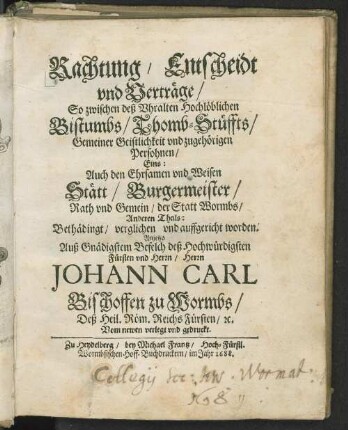 Rachtung / Entscheidt
vnd Verträge /
So zwischen deß Vhralten Hochlöblichen
Bistumbs / Thomb-Stüffts /
Gemeiner Geistlichkeit vnd zugehörigen
Persohnen /
Eins:
Auch den Ehrsamen vnd Weisen
Stätt / Burgermeister /
Rath vnd Gemein / der Statt Wormbs /
Anderen Theils:
Bethädingt / verglichen vnd auffgericht worden.
Auß Gnädigstem Befelch deß Hochwürdigsten
Fürsten vnd Herrn / Herrn
JOHANN CARL
Bischoffen zu Wormbs /
Deß Heil. Röm. Reichs Fürsten / ꝛc.
Vom newen verlegt vnd gedruckt.
Zu Heydelberg / bey Michael Frantz / Hoch-Fürstl.
Wormbsischen-Hoff-Buchdruckern / im Jahr 1688.
Collegij Soc: Jesu Wormat: